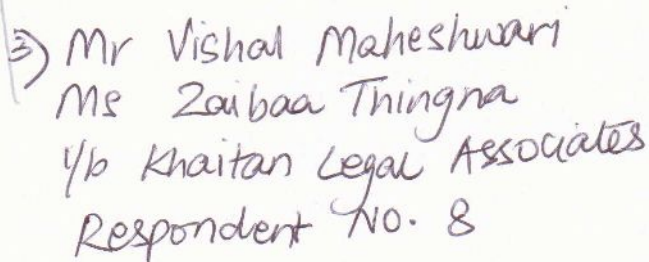 3) Mr Vishal Maheshwari
Ms Zaibaa Thingna
i/b Khaitan Legal Associates
Respondent No. 8